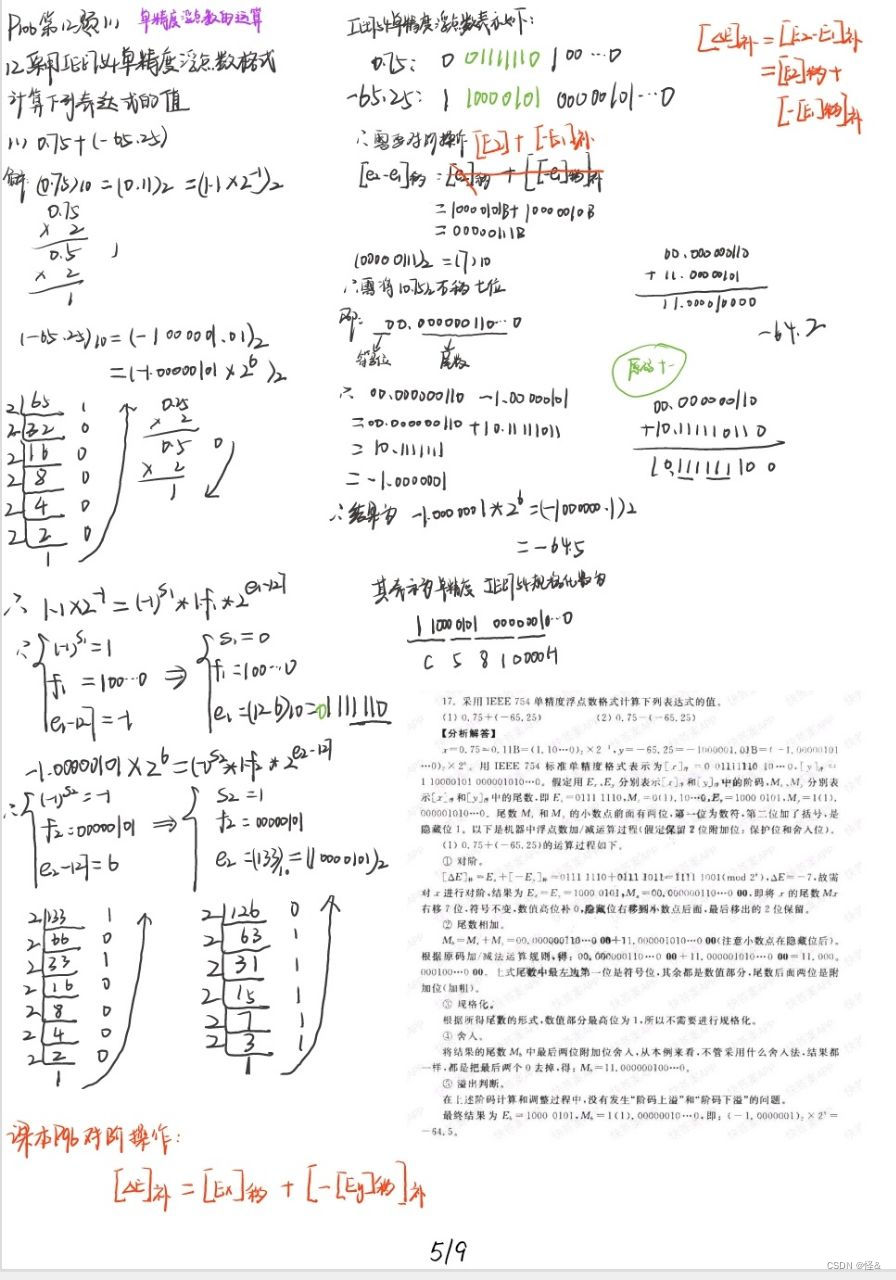 P106第12题(1) 单精度浮点数的运算
12.采用IEEE754单精度浮点数格式
计算下列表达式的值
(1) 0.75+(-65.25)
解: (0.75)10 = (0.11)2 = (1.1×2^-1)2
0.75
× 2
0.5 1
× 2
1
(-65.25)10 = (-1000001.01)2
= (-1.00000101×2^6)2
2 65 1
2 32 0
2 16 0
2 8 0
2 4 0
2 2 0
1
0.25
× 2
0.5 0
× 2
1
∴ 1.1×2^-1 = (-1)^S1 * 1.f1 * 2^e1-127
∴ (-1)^S1 = 1
f1 = 100…0
e1-127 = -1
⇒
S1 = 0
f1 = 100…0
e1 = (126)10 = 01111110
-1.00000101×2^6 = (-1)^S2 * 1.f2 * 2^e2-127
∴ (-1)^S2 = -1
f2 = 00000101
e2-127 = 6
⇒
S2 = 1
f2 = 00000101
e2 = (133)10 = (10000101)2
2 133 1
2 66 0
2 33 1
2 16 0
2 8 0
2 4 0
2 2 0
1
2 126 0
2 63 1
2 31 1
2 15 1
2 7 1
2 3 1
1
课本P96对阶操作:
[ΔE]补 = [Ex]移 + [-[Ey]移]补
IEEE754单精度浮点数表示如下:
0.75: 0 01111110 100…0
-65.25: 1 10000101 00000101…0
∴需要对阶操作 [E2] + [-E1]补
[e2-e1]移 = [e2]移 + [[-e1]移]补
= 10000101B + 10000010B
= 00000111B
(00000111)2 = (7)10
∴需将(0.75)2右移七位
即: 00.000000110…0
符号位 尾数
∴ 00.000000110 -1.00000101
= 00.000000110 + 10.11111011
= 10.1111111
= -1.0000001
∴结果为 -1.0000001*2^6 = (-1000000.1)2
= -64.5
其表示为单精度IEEE754规格化数为
1 10000101 0000001 0…0
C 5 8 1 0000H
[ΔE]补 = [E2-E1]补
= [E2]移 +
[-[E1]移]补
00.000000110
+ 11.00000101
11.000010000
-64.2
原码+-
00.000000110
+10.111110110
10.111111100
17. 采用 IEEE 754 单精度浮点数格式计算下列表达式的值。
(1) 0.75+(-65.25) (2) 0.75-(-65.25)
【分析解答】
x=0.75=0.11B=(1.10…0)₂×2⁻¹,y=-65.25=-1000001.01B=(-1.00000101
…0)₂×2⁶。用 IEEE 754 标准单精度格式表示为[x]浮=0 01111110 10…0,[y]浮=
1 10000101 000001010…0。假定用 Ex、Ey 分别表示[x]浮和[y]浮中的阶码,Mx、My 分别表
示[x]浮和[y]浮中的尾数,即 Ex=0111 1110,Mx=0(1).10…0,Ey=1000 0101,My=1(1).
000001010…0。尾数 Mx 和 My 的小数点前面有两位,第一位为数符,第二位加了括号,是
隐藏位 1。以下是机器中浮点数加/减运算过程(假定保留 2 位附加位:保护位和舍入位)。
(1) 0.75+(-65.25)的运算过程如下。
① 对阶。
[ΔE]补=Ex+[-Ey]补=0111 1110+0111 1011=1111 1001(mod 2⁸),ΔE=-7,故需
对 x 进行对阶,结果为 Ex=Ey=1000 0101,Mx=00.000000110…0 00,即将 x 的尾数Mx
右移 7 位,符号不变,数值高位补 0,隐藏位右移到小数点后面,最后移出的 2 位保留。
② 尾数相加。
Mb=Mx+My=00.000000110…0 00+11.000001010…0 00(注意小数点在隐藏位后)。
根据原码加/减法运算规则,得:00.000000110…0 00+11.000001010…0 00=11.000.
000100…0 00。上式尾数中最左边第一位是符号位,其余都是数值部分,尾数后面两位是附
加位(加粗)。
③ 规格化。
根据所得尾数的形式,数值部分最高位为 1,所以不需要进行规格化。
④ 舍入。
将结果的尾数 Mb 中最后两位附加位舍入,从本例来看,不管采用什么舍入法,结果都
一样,都是把最后两个 0 去掉,得:Mb=11.000000100…0。
⑤ 溢出判断。
在上述阶码计算和调整过程中,没有发生“阶码上溢”和“阶码下溢”的问题。
最终结果为 Eb=1000 0101,Mb=1(1).00000010…0,即:(-1.0000001)₂×2⁶=
-64.5。
5/9
CSDN @怪&